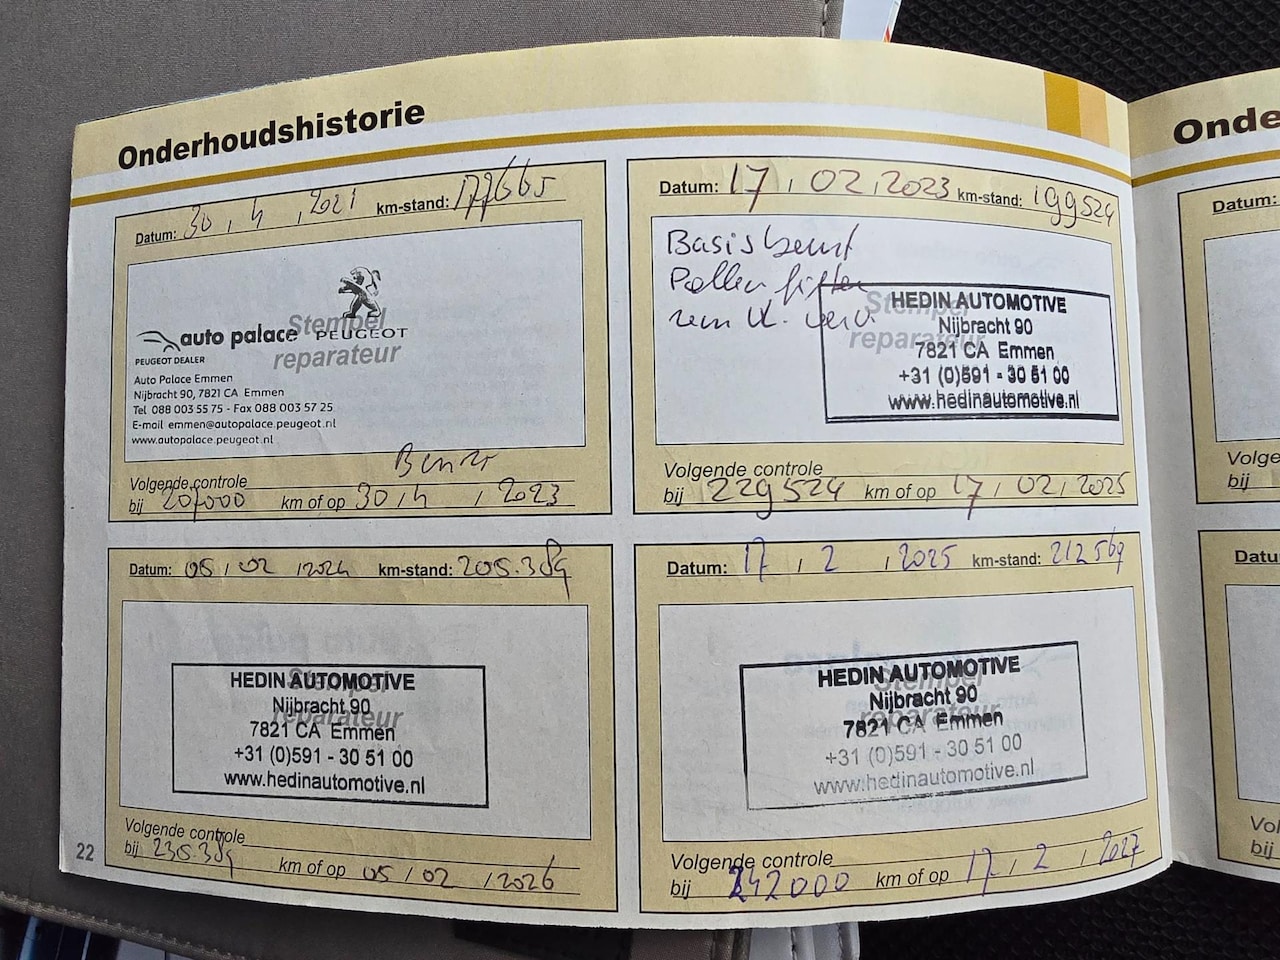 Onderhoudshistorie
Datum: 30 , 4 , 2021 km-stand: 177665
Stempel
reparateur
auto palace PEUGEOT
PEUGEOT DEALER
Auto Palace Emmen
Nijbracht 90, 7821 CA Emmen
Tel 088 003 55 75 - Fax 088 003 57 25
E-mail emmen@autopalace.peugeot.nl
www.autopalace.peugeot.nl
Volgende controle
bij 207000 km of op 30 , 4 , 2023
Datum: 17 , 02 , 2023 km-stand: 199524
Basisbeurt
Pollenfilter
Stempel
reparateur
HEDIN AUTOMOTIVE
Nijbracht 90
7821 CA Emmen
+31 (0)591 - 30 51 00
www.hedinautomotive.nl
Volgende controle
bij 229524 km of op 17 , 02 , 2025
Datum: 05 , 02 , 2024 km-stand: 205.389
Stempel
reparateur
HEDIN AUTOMOTIVE
Nijbracht 90
7821 CA Emmen
+31 (0)591 - 30 51 00
www.hedinautomotive.nl
Volgende controle
bij 235.389 km of op 05 / 02 / 2026
Datum: 17 , 2 , 2025 km-stand: 212569
Stempel
reparateur
HEDIN AUTOMOTIVE
Nijbracht 90
7821 CA Emmen
+31 (0)591 - 30 51 00
www.hedinautomotive.nl
Volgende controle
bij 242000 km of op 17 , 2 , 2027
22
Onde
Datum:
Volge
bij
Datu
Vol
bij